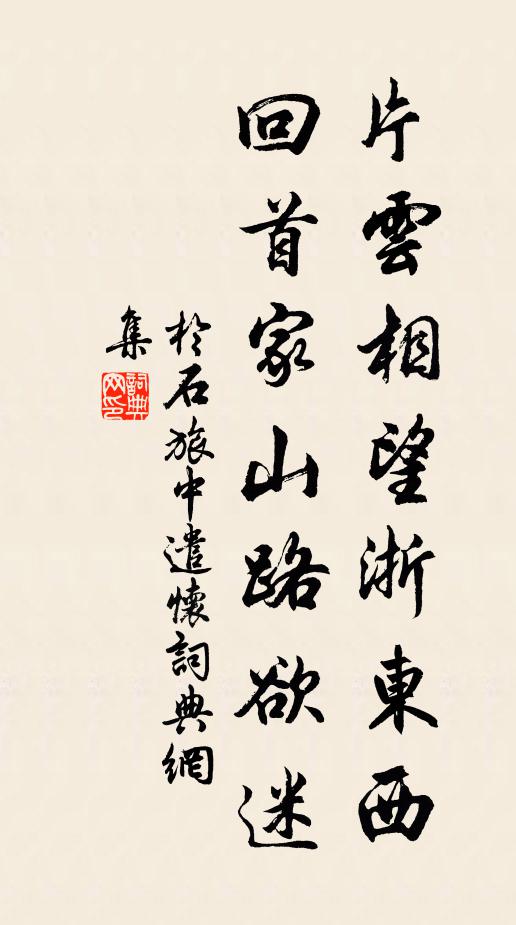 片雲相望浙東西
回首家山路欲迷
於石旅中遣懷詞典網
集
詞典
网印